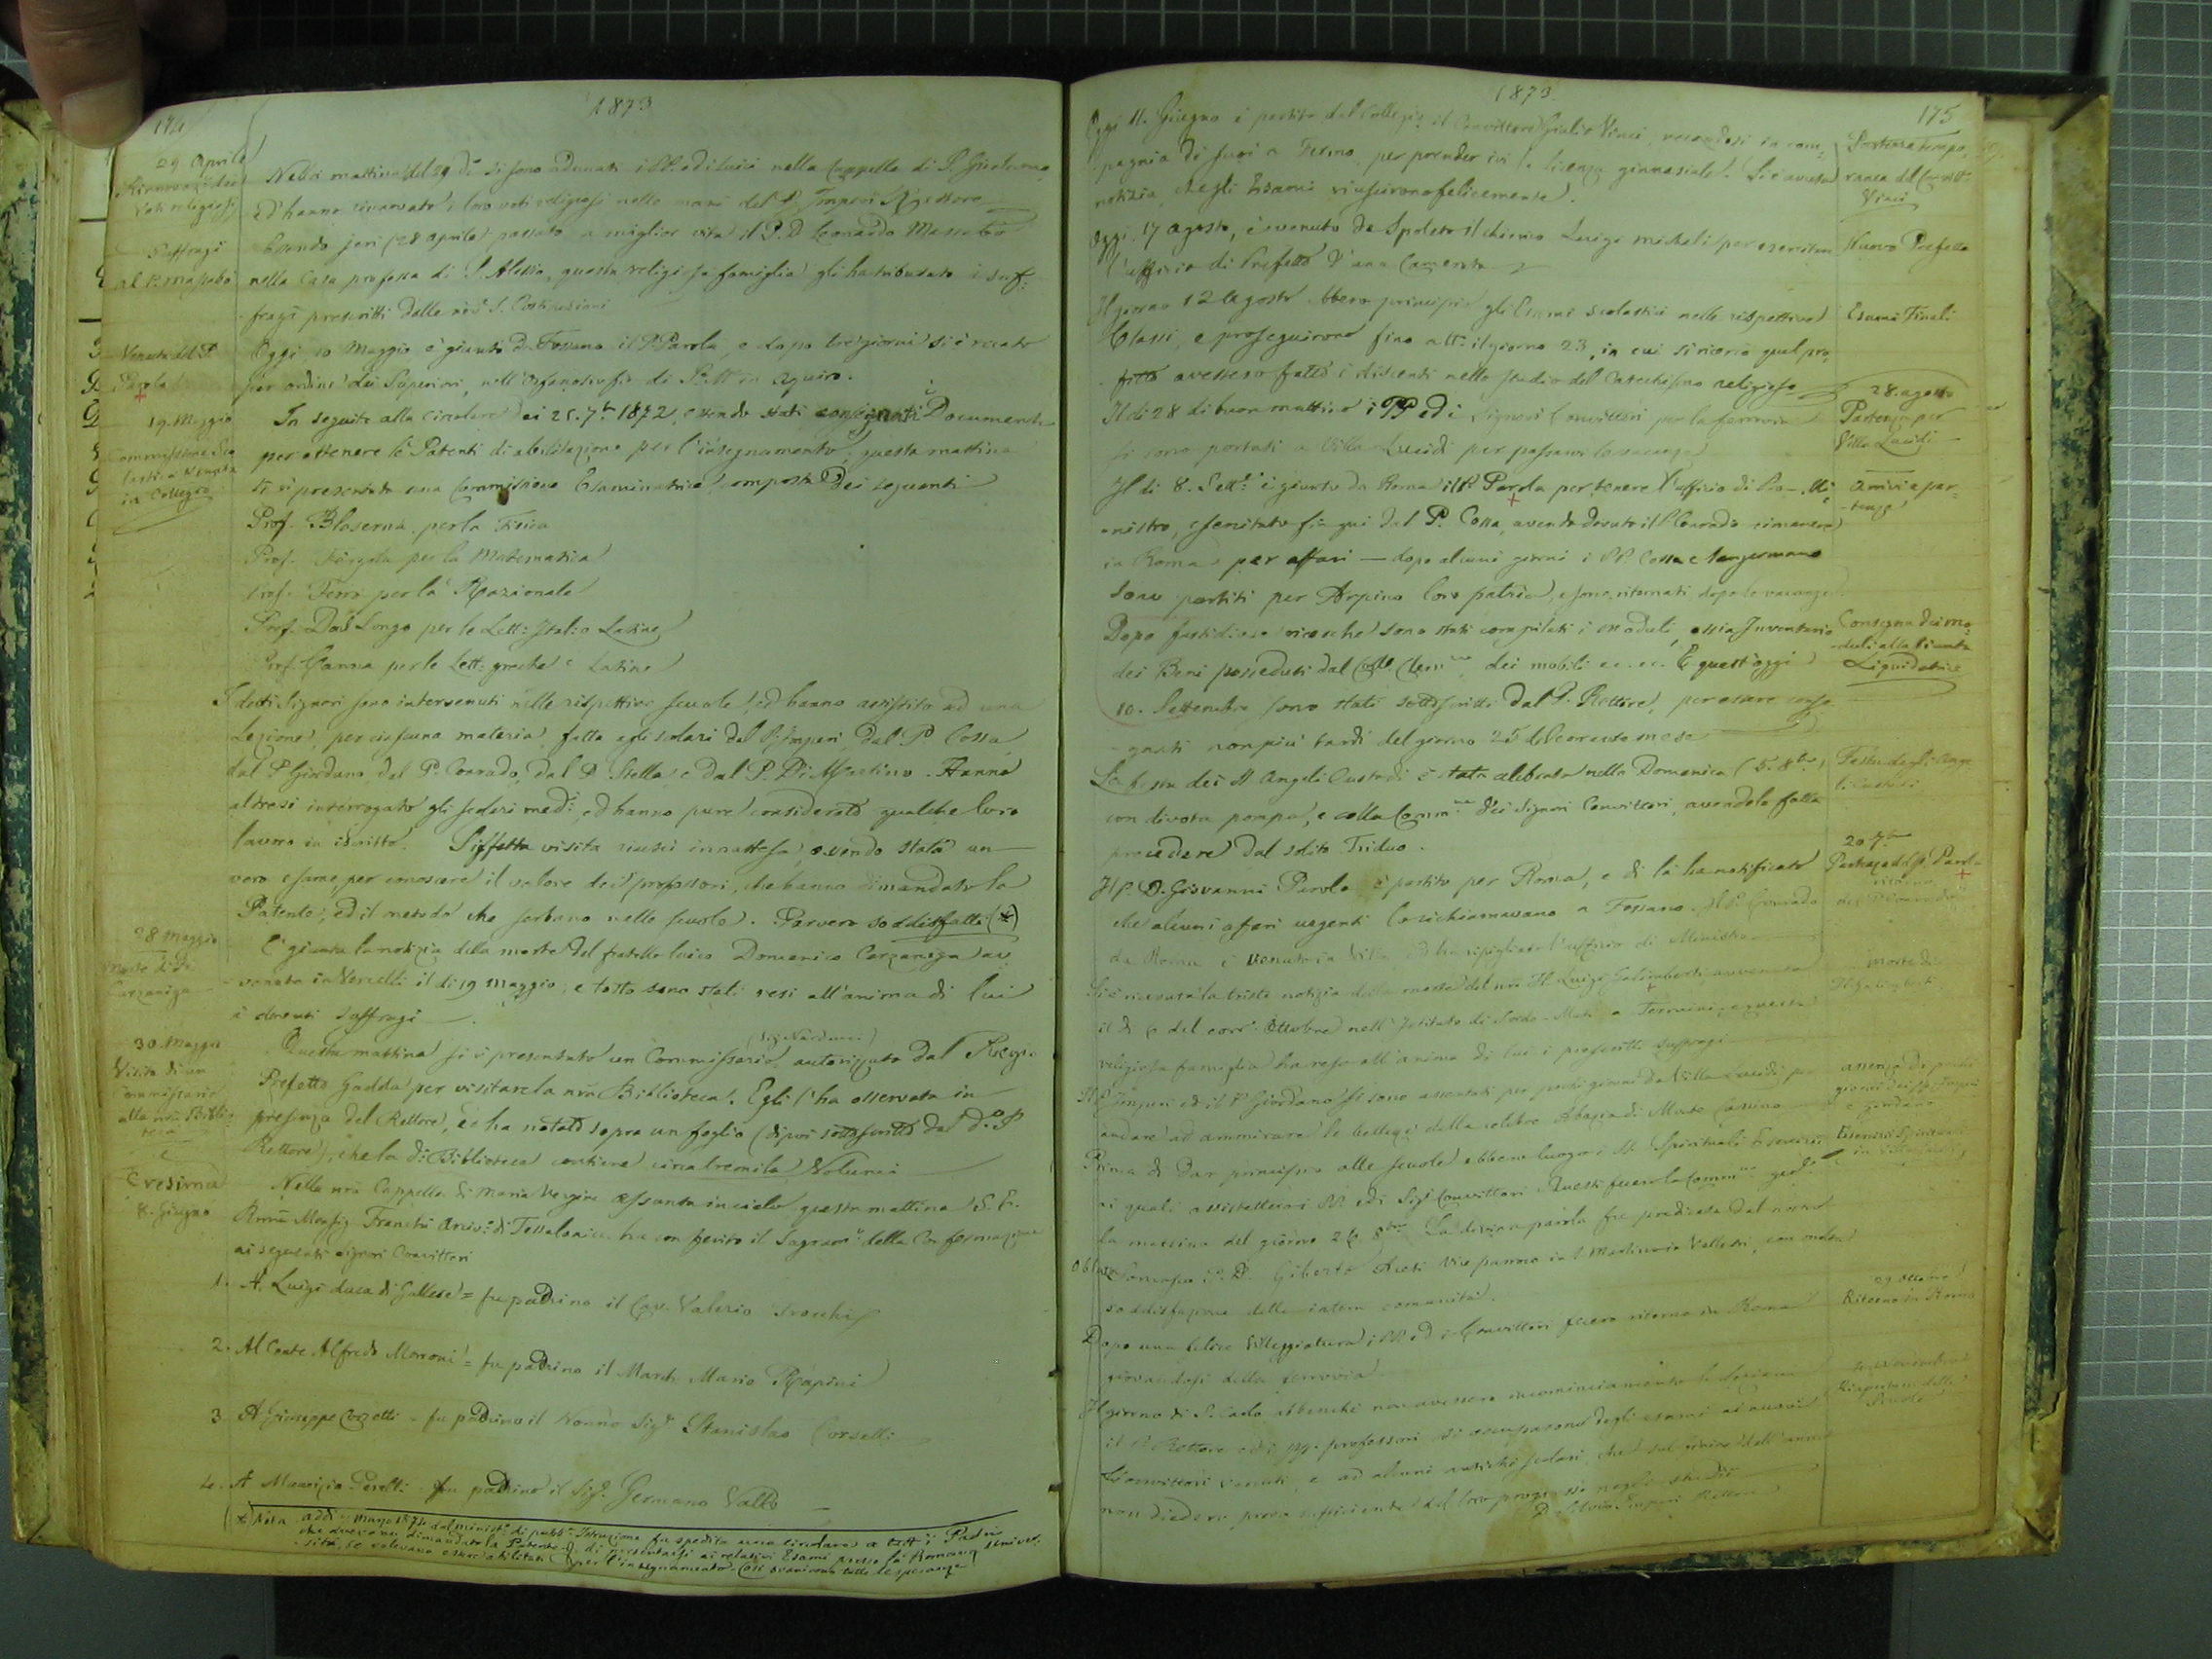 174
1873
29 Aprile
Rinnovaz. dei
Voti religiosi
Nella mattina del 29 di si sono adunati i PP. ed i laici nella Cappella di S. Girolamo
ed hanno rinnovato i loro voti religiosi nelle mani del P. Imperi Rettore
Suffragi
al P. Massabò
Essendo jeri (28 aprile) passato a miglior vita il P. D. Leonardo Massabò
nella Casa professa di S. Alessio, questa religiosa famiglia gli ha tributato i suf-
fragi prescritti dalle nre S. Costituzioni
Venuta del P.
Parola
Oggi 10 Maggio è giunto da Fossano il P. Parola, e dopo tre giorni si è recato
per ordine dei Superiori, nell'Orfanotrofio di S. M. in Aquiro.
19. Maggio
Commissione Sco
lastica Venuta
in Collegio
In seguito alla circolare dei 25. 7bre 1872, essendo stati consegnati i Documenti
per ottenere le Patenti di abilitazione per l'insegnamento; questa mattina
si è presentata una Commissione Esaminatrice composta dei seguenti
Prof. Blaserna, per la Fisica
Prof. Fergola per la Matematica
Prof. Ferri per la Razionale
Prof. Dal Longo per le Lett: Italo Latine
Prof. Canna per le Lett: greche e Latine
I detti Signori sono intervenuti nelle rispettive scuole, ed hanno assistito ad una
Lezione, per ciascuna materia, fatta agli scolari dal P. Imperi, dal P. Cossa,
dal P. Giordano dal P. Conrado, dal P. Stella e dal P. Di Martino. Hanno
altresì interrogato gli scolari medi, ed hanno pure considerato qualche loro
lavoro in iscritto. Siffatta visita riuscì innattesa, essendo stata un
vero esame, per conoscere il valore dei professori, che hanno dimandato la
Patente, ed il metodo che serbano nelle scuole. Parvero soddisfatti (*)
28 Maggio
Morte di Fr.
Carzaniga
È giunta la notizia della morte del fratello laico Domenico Carzaniga av
venuta in Vercelli il di 19 maggio; e tosto sono stati resi all'anima di lui
i dovuti suffragi
30. Maggio
Visita di un
Commissario
alla nra Biblio
teca
(Sig. Narducci)
Questa mattina si è presentato un Commissario, autorizzato dal Regio
Prefetto Gadda per visitare la nra Biblioteca. Egli l'ha osservata in
presenza del Rettore, ed ha notato sopra un foglio (di poi sottoscritto dal d.o P.
Rettore), che la di Biblioteca contiene circa tremila Volumi
Cresima
8. Giugno
Nella nra Cappella di Maria Vergine Assunta in cielo questa mattina S. E.
Rma Monsig Franchi Arciv.o di Tessalonica ha conferito il Sagram.o della Confermazione
ai seguenti signori Convittori
1. A. Luigi duca di Gallese = fu padrino il Cav. Valerio Trocchi
2. Al Conte Alfredo Morroni = fu padrino il March. Mario Rapini
3. A Giuseppe Corsetti - fu padrino il Nonno Sig.r Stanislao Corsetti
4. A Maurizio Perelli - fu padrino il Sig.r Germano Vallo
(* Nota addì - marzo 1874 dal minist.o di pubb.a Istruzione fu spedita una circolare a tutti i Padri
che avevano dimandato la Patente, di presentarsi ai relativi Esami presso la Romana Univer-
sità, se volevano essere abilitati per l'insegnamento. Così svanirono tutte le speranze
1873.
175
Oggi 11. Giugno è partito dal Collegio il Convittore Giulio Vinci, recandosi in com-
pagnia di suoi a Fermo, per prender ivi la licenza ginnasiale. Si è avuta
notizia, che gli Esami riuscirono felicemente.
Partenza tempo
ranea del Convitt.e
Vinci
Oggi 17 agosto, è venuto da Spoleto il chierico Luigi Micheli per esercitare
l'uffizio di Prefetto d'una Camerata
Nuovo Prefetto
Il giorno 12 Agosto ebbero principio gli Esami scolastici nelle rispettive
Classi, e proseguirono fino a tt.o il giorno 23, in cui si ricercò qual pro-
fitto avessero fatto i discenti nello studio del Catechismo religioso
Esami Finali
Il di 28 di buon mattino i PP. ed i Signori Convittori per la ferrovia
si sono portati a Villa Lucidi per passarvi le vacanze
28. agosto
Partenza per
Villa Lucidi
Il di 8. Sett.e è giunto da Roma il P. Parola per tenere l'uffizio di Pro-Mi-
nistro, esercitato fin qui dal P. Cossa, avendo dovuto il P. Conrado rimanere
in Roma per affari — dopo alcuni giorni i PP. Cossa e Sangermano
sono partiti per Arpino loro patria, e sono ritornati dopo le vacanze.
Arrivi e par-
tenze
Dopo fastidiose ricerche sono stati compilati i moduli, ossia Inventario
dei Beni posseduti dal Coll.o Clem.no dei mobili ec. ec. E quest'oggi
10. Settembre sono stati sottoscritti dal P. Rettore, per essere conse
gnati non più tardi del giorno 25 del corrente mese
Consegna dei mo-
duli alla Giunta
Liquidatrice
La festa dei SS Angeli Custodi è stata celebrata nella Domenica (5. 8bre)
con divota pompa, e colla Comm.ne dei Signori Convittori, avendola fatta
precedere dal solito Triduo.
Festa degli Ange
li Custodi
Il P. D. Giovanni Parola è partito per Roma, e di là ha notificato
che alcuni affari urgenti lo richiamavano a Fossano. Il P. Conrado
da Roma è venuto in Villa ed ha ripigliato l'uffizio di Ministro
20 7bre
Partenza del P. Parola
ritorno
del P. Conrado
Si è ricevuta la triste notizia della morte del nro Il. Luigi Galimberti avvenuta
il di 6 del corr. Ottobre nell'Istituto di Sordo-Muti a Termini; e questa
religiosa famiglia ha reso all'anima di lui i prescritti suffragi
morte di
Il. Galimberti
Il P. Imperi ed il P. Giordano si sono assentati per pochi giorni da Villa Lucidi per
andare ad ammirare le bellezze della celebre Abazia di Monte Cassino
assenza di pochi
giorni dei PP. Imperi
e Giordano
Prima di dar principio alle scuole ebbero luogo i SS. Spirituali Esercizi,
ai quali assistettero i PP. ed i Sig.i Convittori. Questi fecero la Comm.ne
la mattina del giorno 26 8bre. La divina parola fu predicata dal nostro
Oblato Somasco P. D. Giberto Viceparroco in S. Martino in Velletri, con molta
soddisfazione della intera comunità.
Esercizi Spirituali
in Villa Lucidi
Dopo una felice Villeggiatura i PP. ed i Convittori fecero ritorno in Roma
giovandosi della ferrovia.
29 Ottobre
Ritorno in Roma
Il giorno di S. Carlo, ebbenchè non avessero incominciamento le lezioni
il P. Rettore ed i pp. professori si occuparono degli esami ai nuovi
Convittori venuti, e ad alcuni antichi scolari, che sul finire dell'anno
non diedero prova sufficiente del loro progresso negli studii
4. Novembre
Riapertura delle
Scuole
D. Silvio Imperi Rettore